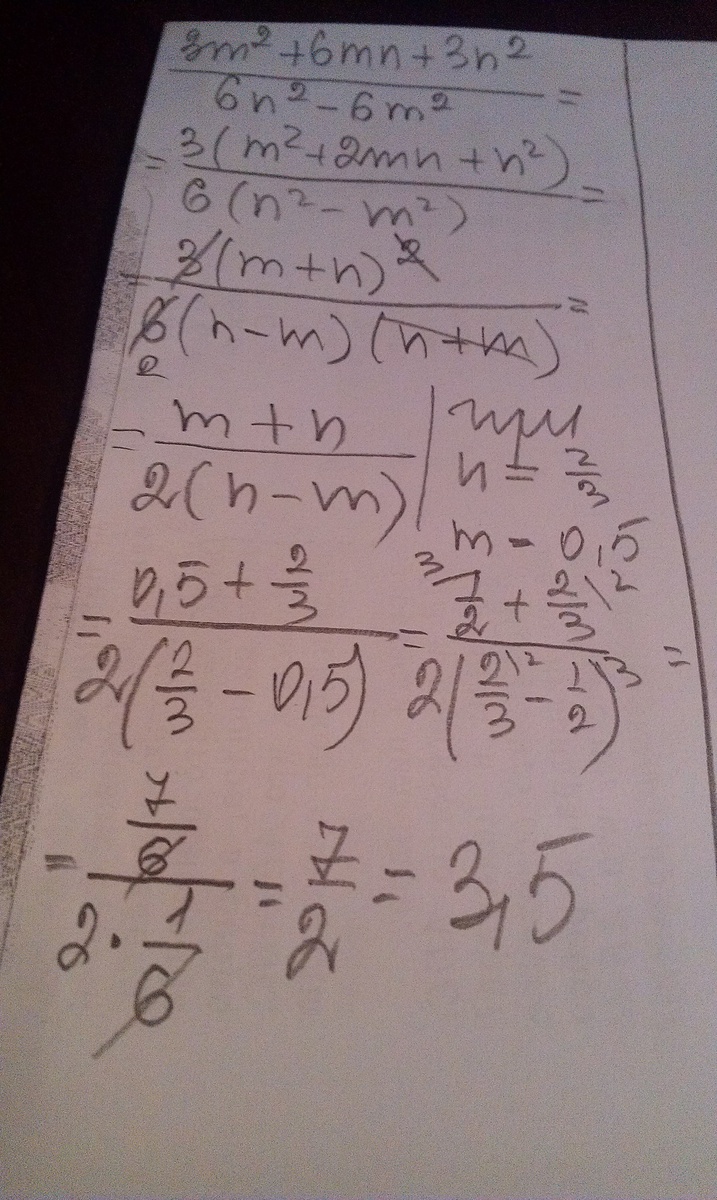 3m²+6mn+3n² / 6n²-6m² =
= 3(m²+2mn+n²) / 6(n²-m²) =
= 3(m+n)² / 6(n-m)(n+m) =
2
= m+n / 2(n-m) | при n = 2/3
m = 0,5
= 0,5+2/3 / 2(2/3-0,5) = ³⁾1/2+2/3⁾² / 2(2/3⁾²-1/2)³ =
= 7/6 / 2·1/6 = 7/2 = 3,5